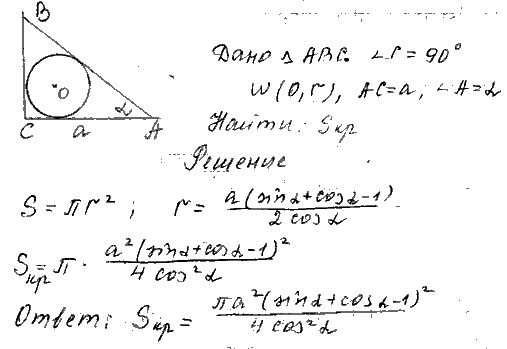 B
O
C a α A
Дано △ ABC. ∠C = 90°
W(O, r), AC = a, ∠A = α
Найти: Sкр
Решение
S = πr²; r = a(sinα + cosα - 1) / 2 cosα
Sкр = π · a²(sinα + cosα - 1)² / 4 cos²α
Ответ: Sкр = πa²(sinα + cosα - 1)² / 4 cos²α